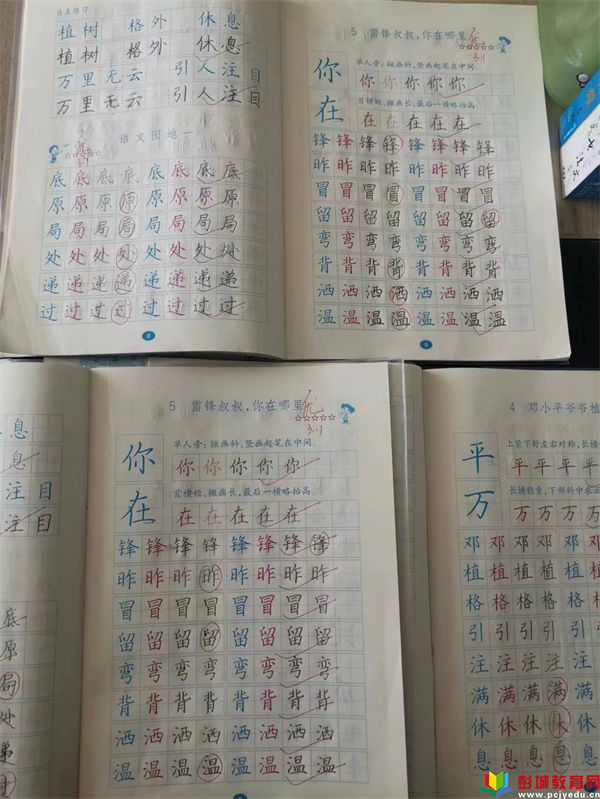 自主练习
植树 格外 休息
植树 格外 休息
万里无云 引人注目
万里无云 引人注目
语文园地一
底底底底底底底底
原原原原原原原原
局局局局局局局局
处处处处处处处处
递递递递递递递递
过过过过过过过过
8
5 雷锋叔叔,你在哪里
优
3.11
单人旁:撇画斜,竖画起笔在中间.
你 你你你你你
首横短,撇画长,最后一横略抬高.
在 在在在在在
锋锋锋锋锋锋锋锋
昨昨昨昨昨昨昨昨
冒冒冒冒冒冒冒冒
留留留留留留留留
弯弯弯弯弯弯弯弯
背背背背背背背背
洒洒洒洒洒洒洒洒
温温温温温温温温
9
息
息
注目
注目
底
原
局
处
递
过
5 雷锋叔叔,你在哪里
优
3.11
单人旁:撇画斜,竖画起笔在中间.
你 你你你你你
首横短,撇画长,最后一横略抬高.
在 在在在在在
锋锋锋锋锋锋锋锋
昨昨昨昨昨昨昨昨
冒冒冒冒冒冒冒冒
留留留留留留留留
弯弯弯弯弯弯弯弯
背背背背背背背背
洒洒洒洒洒洒洒洒
温温温温温温温温
4 邓小平爷爷植
上紧下舒左右对称,长横
平 平平平平平
长横稳重,下部斜中求正
万 万万万万
邓邓邓邓邓
植植植植植
格格格格格
引引引引引
注注注注注
满满满满满
休休休休休
息息息息息
彭城教育网
www.pcjyedu.cn